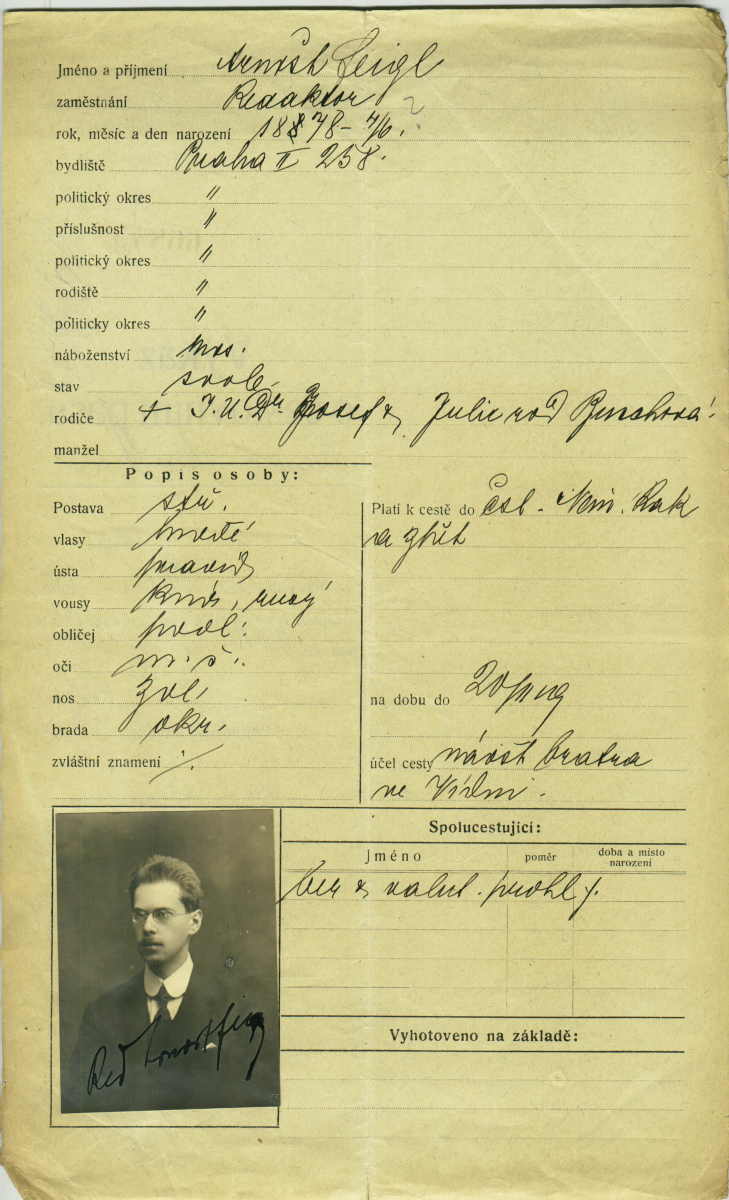 Jméno a příjmení Arnošt Feigl
zaměstnání Redaktor
rok, měsíc a den narození 1878 - 4/6. ?
bydliště Praha II 258.
politický okres "
příslušnost "
politický okres "
rodiště "
politicky okres "
náboženství mos.
stav svob.
rodiče + J. U. Dr. Josef & Julie rod
manžel
Popis osoby:
Postava stř.
vlasy hnědé
ústa pravid
vousy knír, rusý
obličej podl.
oči m. š.
nos
brada okr.
zvláštní znamení ./.
Platí k cestě do Čsl. Něm. Rak
a zpět
na dobu do
účel cesty návšt bratra
ve Vídni.
Spolucestující:
Jméno poměr doba a místo narození
bez valut. prohl.
Vyhotoveno na základě:
Red Arnošt Feigl